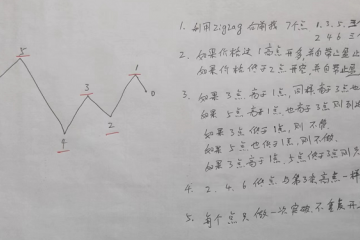 1. 利用 Zigzag 会箱我 7个点 1. 3. 5.
2 4 6 三个
2. 如果价格过1高点开多,并由带止盈止
如果价格低于2点开空,并由带止盈
3. 如果 3点 高于 1点,同样 高于 3点 也
如果 5点 高于 1点 也 高于 3点 则
如果 3点 低于 1点,则不做
如果 5点 也低于 1点,则不做.
如果 3点 高于 1点,5点 低于 3点 则只
4. 2. 4. 6 低点 与第3条 高点一样
5. 每个点只做一次突破,不重复开
5
3
1
0
2
4